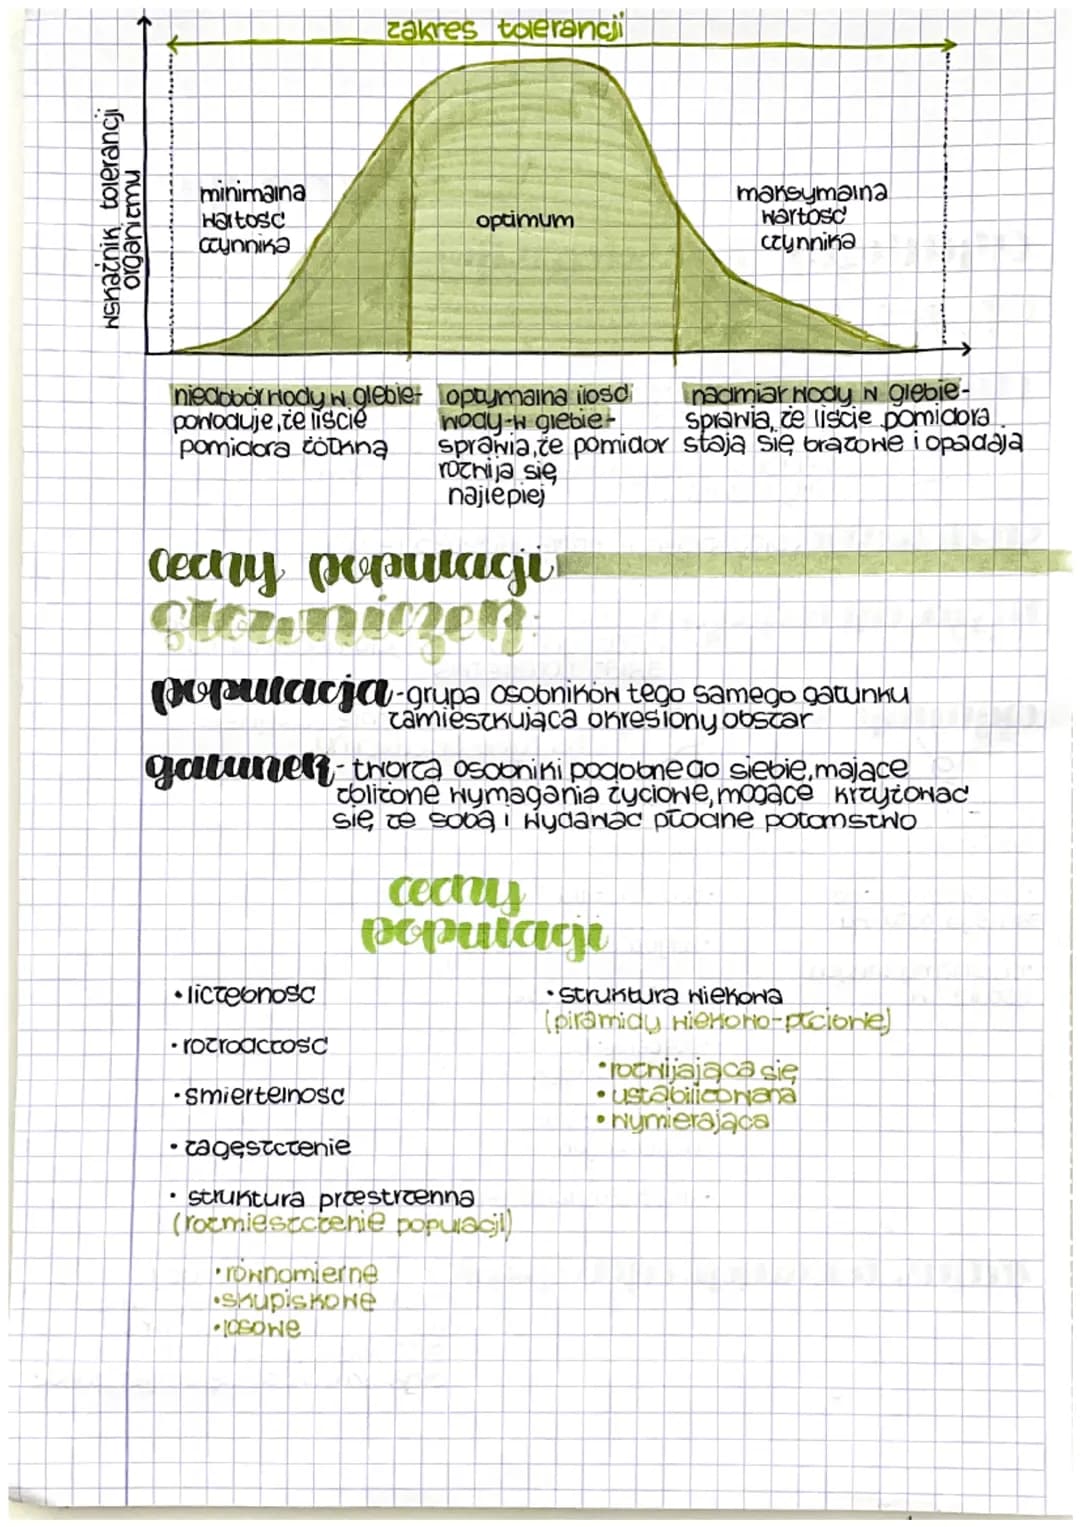 zakres tolerancji
wskaźnik tolerancji
organizmu
minimalna
wartość
czynnika
optimum
maksymalna
wartość
czynnika
niedobór wody w glebie-
powoduje, że liście
pomidora żółkną
optymalna ilość
wody w glebie-
sprawia, że pomidor
rozwija się
najlepiej
nadmiar wody w glebie-
sprawia, że liście pomidora
stają się brązowe i opadają
cechy populacji
słowniczek:
populacja-grupa osobników tego samego gatunku
zamieszkująca określony obszar
gatunek- tworzą osobniki podobne do siebie, mające
zbliżone wymagania życiowe, mogące krzyżować
się ze sobą i wydawać płodne potomstwo
cechy
populacji
•liczebność
•rozrodczość
•śmiertelność
•zagęszczenie
• struktura przestrzenna
(rozmieszczenie populacji)
•równomierne
•skupiskowe
•losowe
•struktura wiekowa
(piramidy wiekowo-płciowe)
•rozwijająca się
•ustabilizowana
•wymierająca